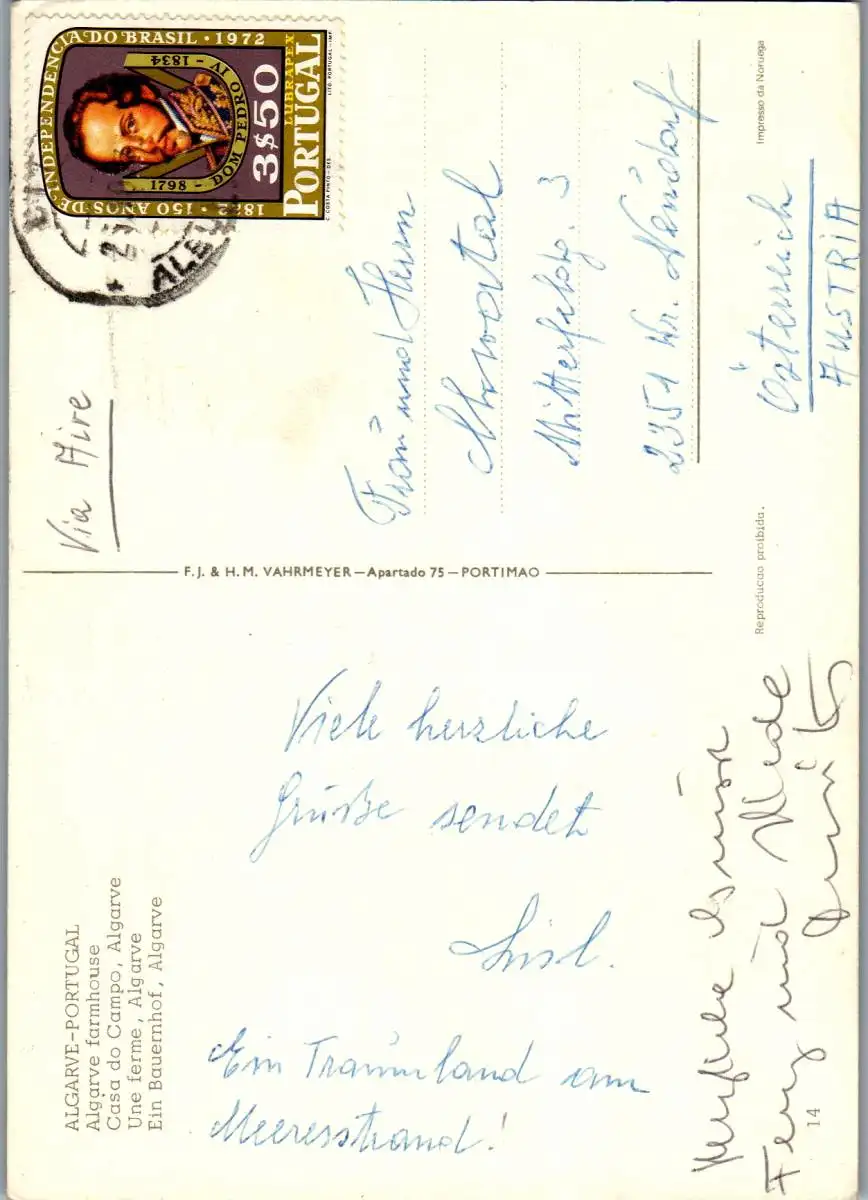 ALGARVE-PORTUGAL
Algarve farmhouse
Casa do Campo, Algarve
Une ferme, Algarve
Ein Bauernhof, Algarve
Viele herzliche
Grüße sendet
Lisl.
Ein Traumland am
Meeresstrand!
und
14
F. J. & H. M. VAHRMEYER—Apartado 75—PORTIMAO
Reproducao proibida.
Impresso da Noruega
Via Aire
1822 · 150 ANOS DE INDEPENDENCIA DO BRASIL · 1972
1798 - DOM PEDRO IV - 1834
3$50
LUBRAPEX
PORTUGAL
C. COSTA PINTO-DES.
LITO. PORTUGAL-IMP.
Frau und Herrn
Mitterfeldg. 3
2351 Wr. Neudorf
Österreich
AUSTRIA